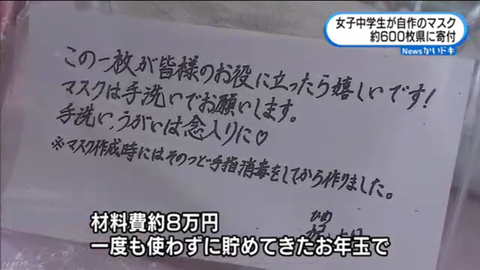 女子中学生が自作のマスク
約600枚県に寄付
Newsかいドキ
この一枚が皆様のお役に立ったら嬉しいです!
マスクは手洗いでお願いします。
手洗い、うがいは念入りに♡
※マスク作成時にはそのつど手指消毒をしてから作りました。
材料費約8万円
一度も使わずに貯めてきたお年玉で
NHK